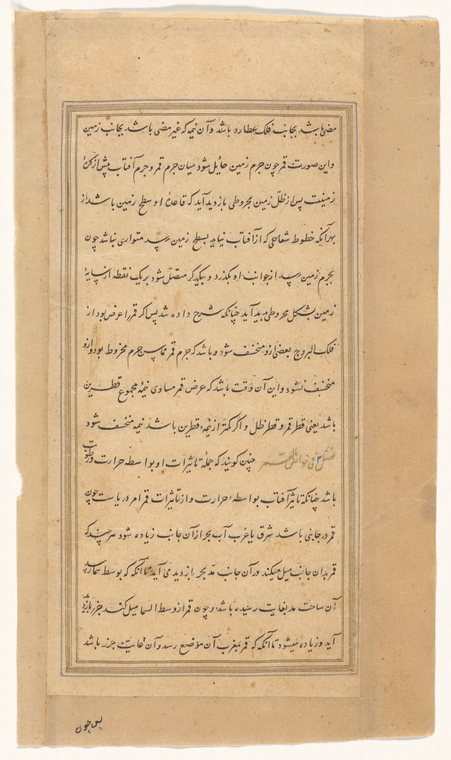 مضی باشد بجانب فلک عطارد باشد و آن نیمه که غیر مضی باشد بجانب زمین
و این صورت قمر چون جرم زمین حایل شود میان جرم قمر و جرم آفتاب
زمینست پس از ظل زمین مخروطی بازدید آید که قاعدهٔ او سطح زمین باشد از
بهر آنکه خطوط شعاعی که از آفتاب بیاید بسطح زمین رسد متوازی نباشد چون
بجرم زمین رسد از جوانب او بگذرد و بیکدیگر متصل شود بر یک نقطه از سایهٔ
زمین بشکل مخروطی پدید آید چنانکه شرح داده شد پس اگر قمر را عرض بود از
فلک البروج بعضی ازو منخسف شود و باشد که جرم قمر مماس جرم مخروط بود و ازو
منخسف نشود و این آن وقت باشد که عرض قمر مساوی نیمهٔ مجموع قطرین
باشد یعنی قطر قمر و قطر ظل و اگر کمتر از نیمهٔ قطرین باشد نیمه منخسف شود
فصل فی خواص القمر چنین گویند که جملهٔ تاثیرات او بواسطه حرارت و رطوبت
باشد چنانکه تاثیر آفتاب بواسطهٔ حرارت و از تاثیرات قمر ام دریاست چون
قمر در جانبی باشد شرق یا غرب آب بحر از آن جانب زیاده شود هر چند که
قمر بدان جانب میل میکند در آن جانب مد بحر بازدید می آید تا آنکه که بوسط سما رسد
آن ساعت مد بغایت رسیده باشد و چون قمر از وسط السما میل کند جزر بازدید
آید و زیاده میشود تا آنکه که قمر بمغرب آن موضع رسد و آن غایت جزر باشد
پس چون